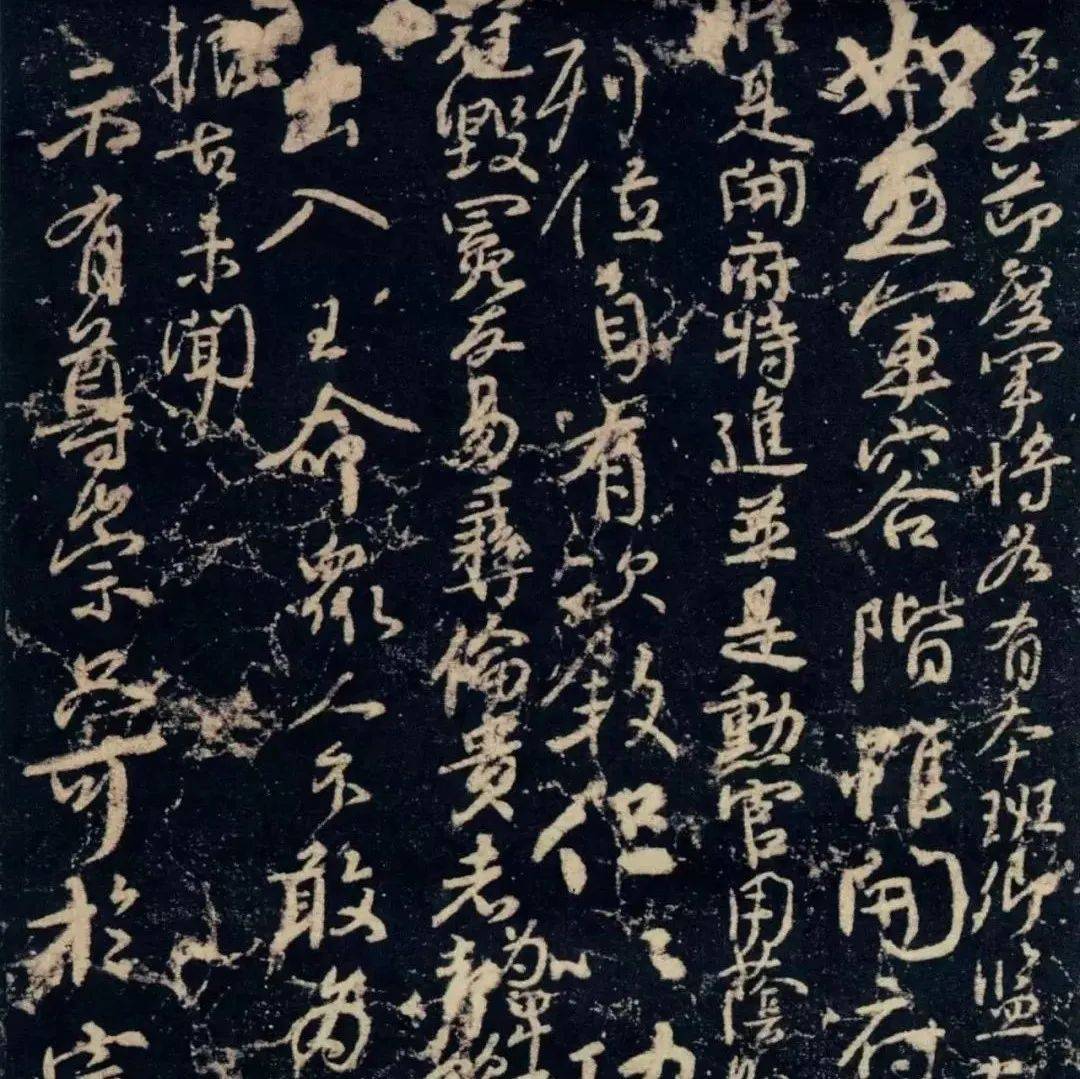 至如節度軍將各有本班卿監
如魚軍容階雖開府
是開府特進並是勳官用蔭
列位自有次敘但以功
冠毀冕反易彝倫貴者為卑
出入王命眾人不敢為
振古未聞
亦有尊崇只可於宗